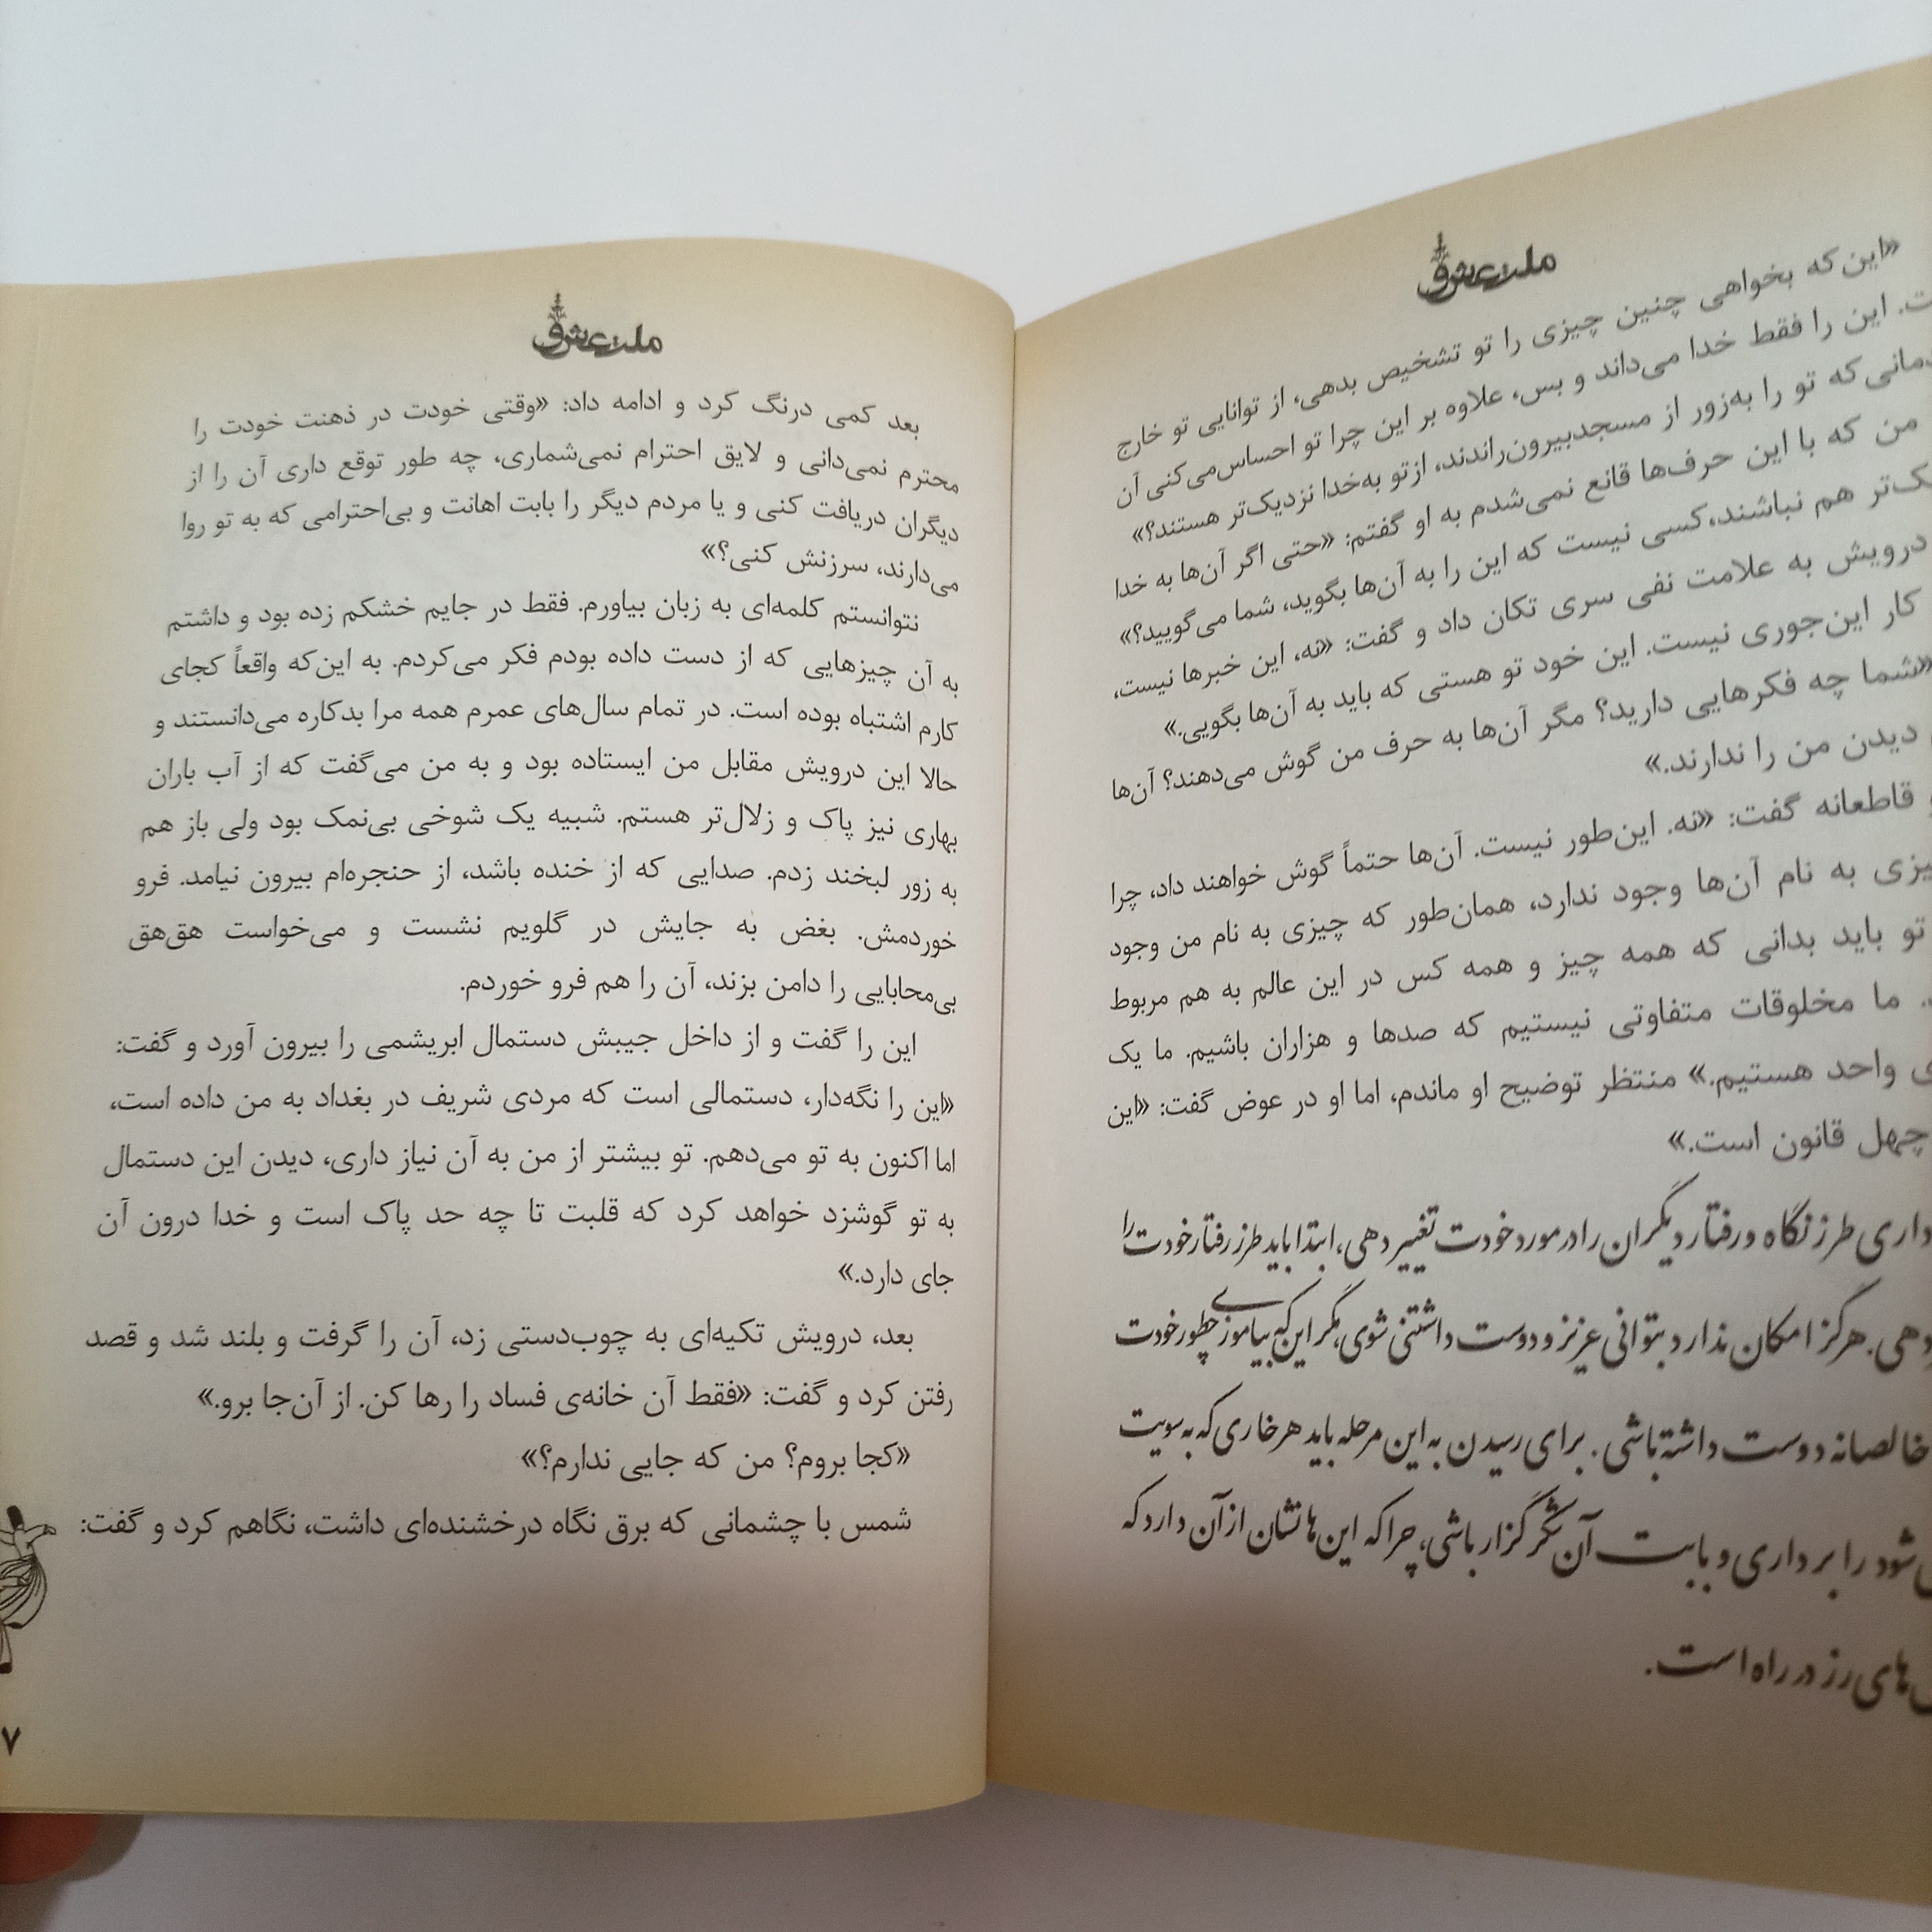 ملت عشق
«این‌که بخواهی چنین چیزی را تو تشخیص بدهی، از توانایی تو خارج
این را فقط خدا می‌داند و بس، علاوه بر این چرا تو احساس‌می‌کنی آن
که تو را به‌زور از مسجدبیرون‌راندند، ازتو به‌خدا نزدیک‌تر هستند؟»
من که با این حرف‌ها قانع نمی‌شدم به او گفتم: «حتی اگر آن‌ها به خدا
هم نباشند،کسی نیست که این را به آن‌ها بگوید، شما می‌گویید؟»
درویش به علامت نفی سری تکان داد و گفت: «نه، این خبرها نیست،
کار این‌جوری نیست. این خود تو هستی که باید به آن‌ها بگویی.»
«شما چه فکرهایی دارید؟ مگر آن‌ها به حرف من گوش می‌دهند؟ آن‌ها
دیدن من را ندارند.»
قاطعانه گفت: «نه. این‌طور نیست. آن‌ها حتماً گوش خواهند داد، چرا
به نام آن‌ها وجود ندارد، همان‌طور که چیزی به نام من وجود
تو باید بدانی که همه چیز و همه کس در این عالم به هم مربوط
ما مخلوقات متفاوتی نیستیم که صدها و هزاران باشیم. ما یک
واحد هستیم.» منتظر توضیح او ماندم، اما او در عوض گفت: «این
چهل قانون است.»
داری طرز نگاه و رفتار دیگران را در مورد خودت تغییر دهی، ابتدا باید طرز رفتار خودت را
دهی. هرگز امکان ندارد بتوانی عزیز و دوست داشتنی شوی، مگر این‌که بیاموزی چطور خودت
خالصانه دوست داشته باشی. برای رسیدن به این مرحله باید هر خاری که به سویت
شود را برداری و بابت آن شکرگزار باشی، چرا که این‌ها نشان از آن دارد که
های رز در راه است.
ملت عشق
بعد کمی درنگ کرد و ادامه داد: «وقتی خودت در ذهنت خودت را
محترم نمی‌دانی و لایق احترام نمی‌شماری، چه طور توقع داری آن را از
دیگران دریافت کنی و یا مردم دیگر را بابت اهانت و بی‌احترامی که به تو روا
می‌دارند، سرزنش کنی؟»
نتوانستم کلمه‌ای به زبان بیاورم. فقط در جایم خشکم زده بود و داشتم
به آن چیزهایی که از دست داده بودم فکر می‌کردم. به این‌که واقعاً کجای
کارم اشتباه بوده است. در تمام سال‌های عمرم همه مرا بدکاره می‌دانستند و
حالا این درویش مقابل من ایستاده بود و به من می‌گفت که از آب باران
بهاری نیز پاک و زلال‌تر هستم. شبیه یک شوخی بی‌نمک بود ولی باز هم
به زور لبخند زدم. صدایی که از خنده باشد، از حنجره‌ام بیرون نیامد. فرو
خوردمش. بغض به جایش در گلویم نشست و می‌خواست هق‌هق
بی‌محابایی را دامن بزند، آن را هم فرو خوردم.
این را گفت و از داخل جیبش دستمال ابریشمی را بیرون آورد و گفت:
«این را نگه‌دار، دستمالی است که مردی شریف در بغداد به من داده است،
اما اکنون به تو می‌دهم. تو بیشتر از من به آن نیاز داری، دیدن این دستمال
به تو گوشزد خواهد کرد که قلبت تا چه حد پاک است و خدا درون آن
جای دارد.»
بعد، درویش تکیه‌ای به چوب‌دستی زد، آن را گرفت و بلند شد و قصد
رفتن کرد و گفت: «فقط آن خانه‌ی فساد را رها کن. از آن‌جا برو.»
«کجا بروم؟ من که جایی ندارم؟»
شمس با چشمانی که برق نگاه درخشنده‌ای داشت، نگاهم کرد و گفت:
۷